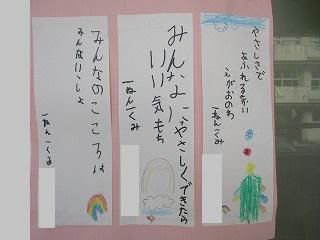 やさしさで
あふれる
えがおのわ
一ねん一くみ
みんなに やさしくできたら
いい気もち
一ねん一くみ
みんなのこころは
みんないっしょ
一ねん一くみ